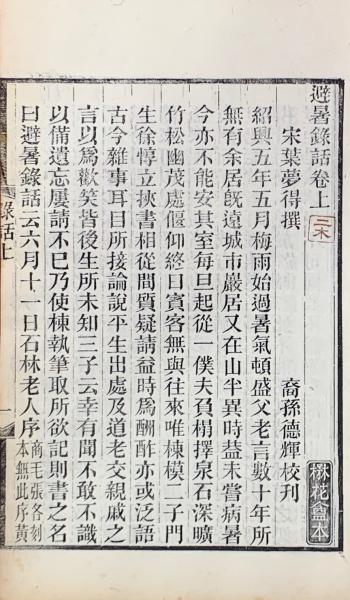 避暑錄話卷上
宋葉夢得撰　裔孫德輝校刊
紹興五年五月梅雨始過暑氣頓盛父老言數十年所
無有余居旣遠城市巖居又在山半異時葢未嘗病暑
今亦不能安其室每旦起從一僕夫負榻擇泉石深曠
竹松幽茂處偃仰終日賓客無與往來唯棟模二子門
生徐惇立挾書相從閒質疑請益時爲酬酢亦或泛語
古今雜事耳目所接論說平生出處及道老交親戚之
言以爲歡笑皆後生所未知三子云幸有聞不敢不識
以備遺忘屢請不已乃使棟執筆取所欲記則書之名
曰避暑錄話云六月十一日石林老人序商毛張各刻本無此序黃
錄話上
楙花盦本